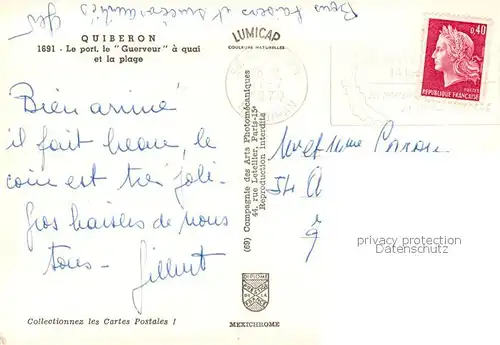 Bons baisers et
QUIBERON
1691 - Le port, le "Guerveur" à quai
et la plage
LUMICAP
COULEURS NATURELLES
0,40
POSTES
REPUBLIQUE FRANÇAISE
Bien arrivé
il fait beau, le
coin est très joli.
Gros baisers de nous
tous - Gilbert
(69) Compagnie des Arts Photomécaniques
44, rue Letellier, Paris-15e
Reproduction Interdite
54
privacy protection
Datenschutz
DIPLOME
PRESTIGE
DE LA
FRANCE
Collectionnez les Cartes Postales !
MEXICHROME